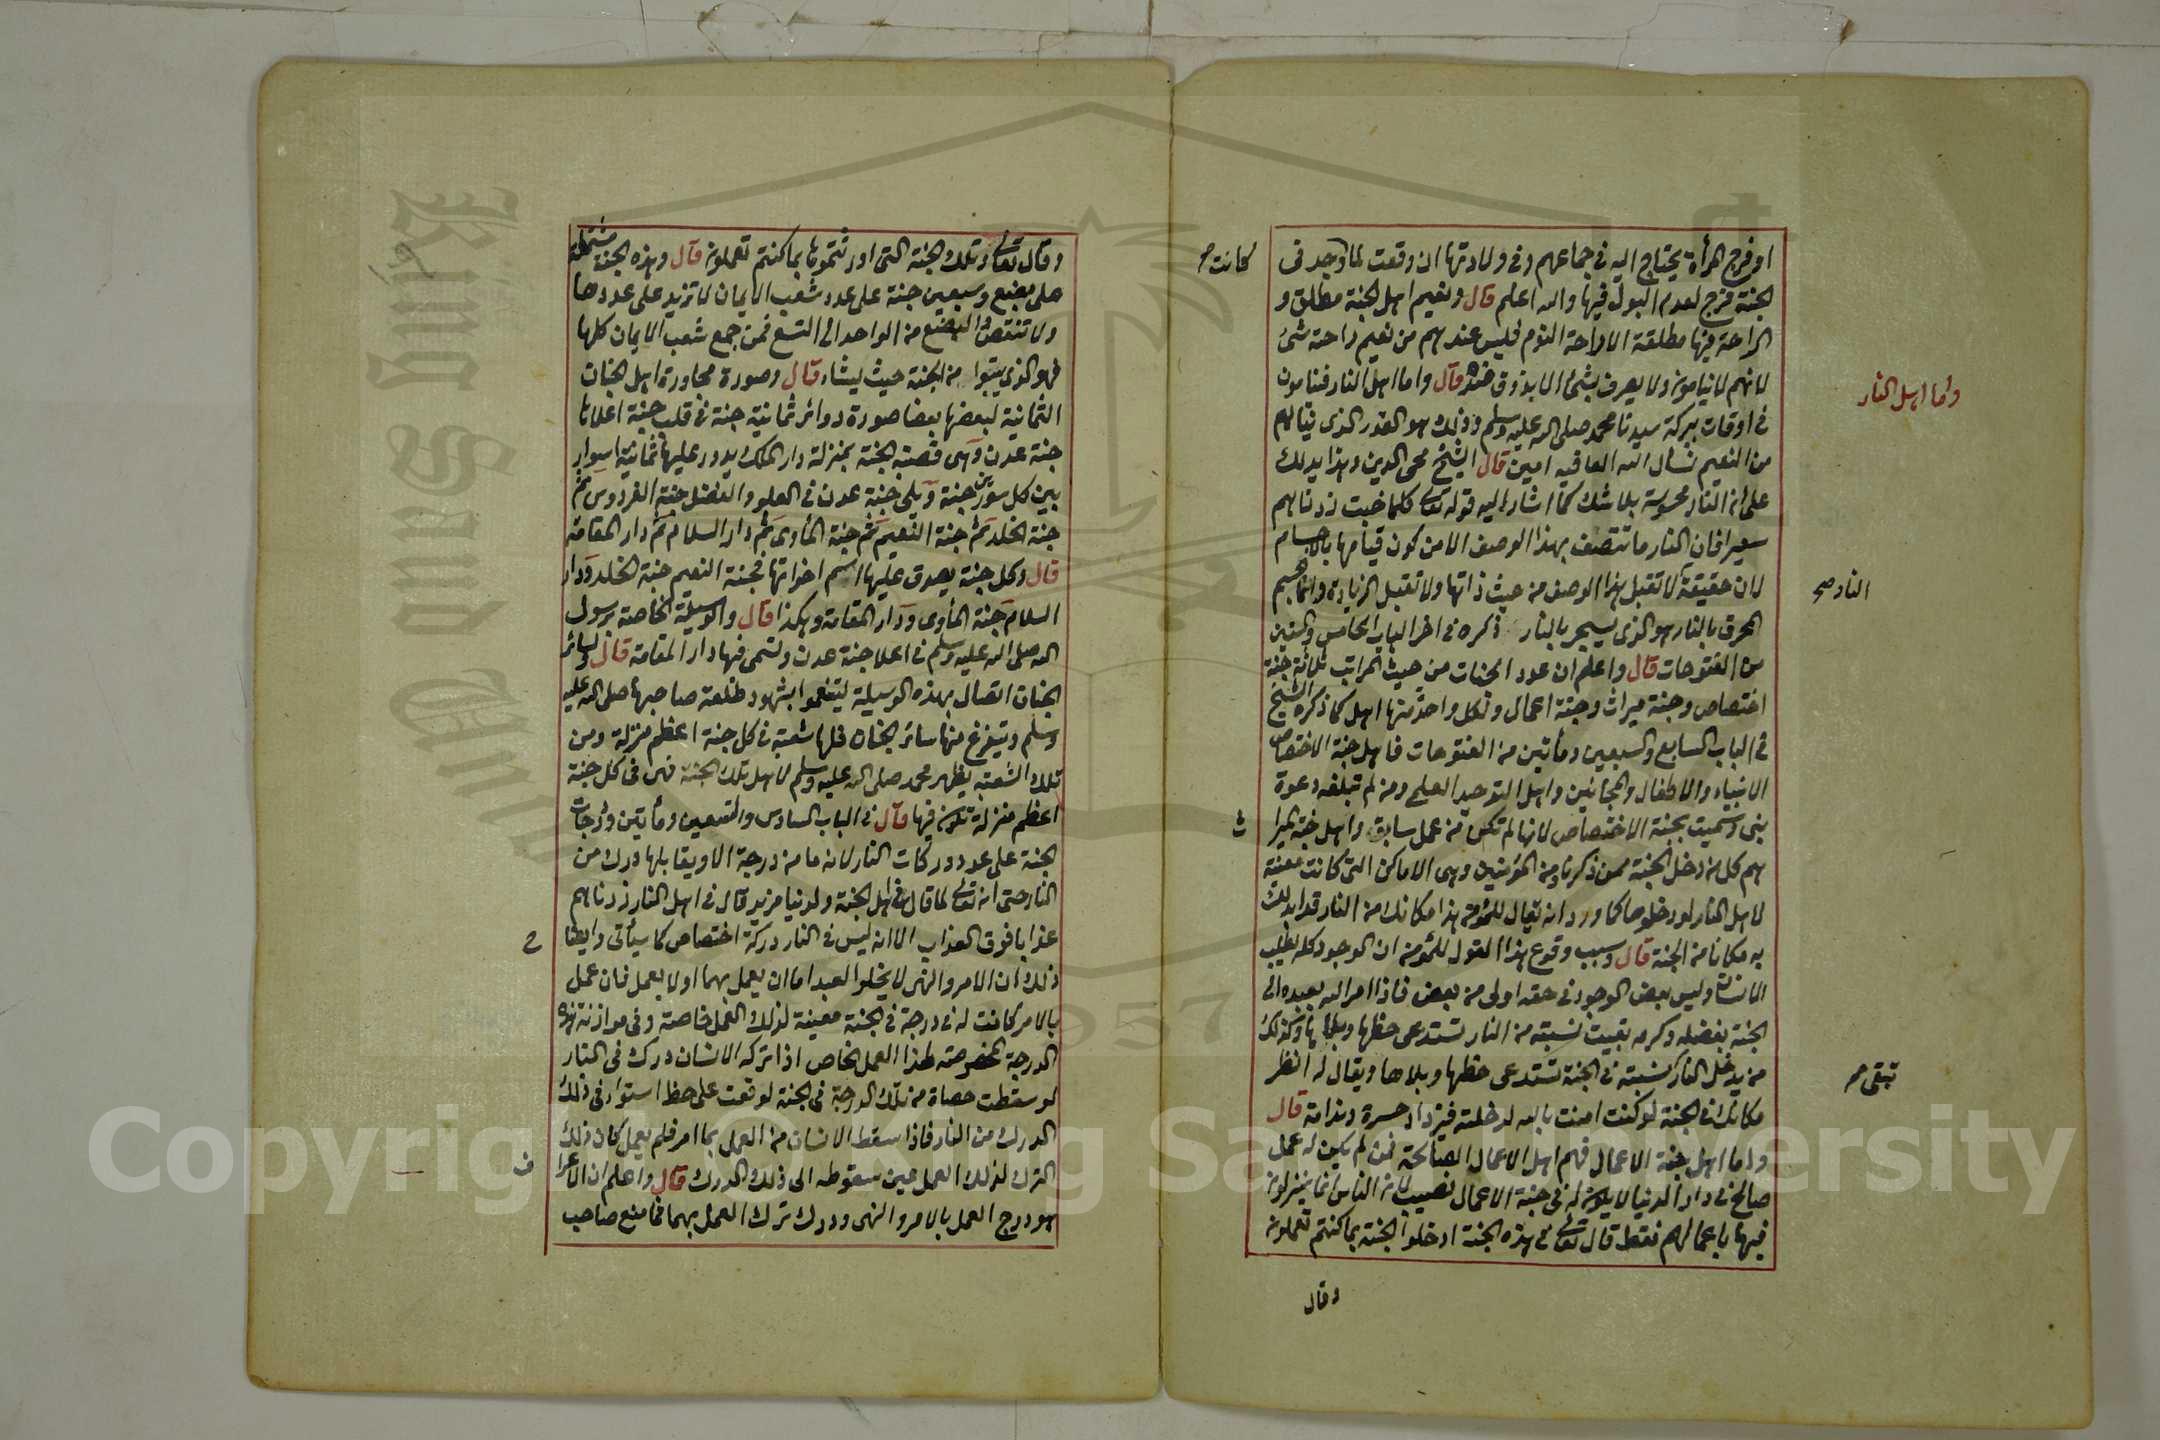 او فرج المرأة يحتاج اليه في جماعهم وفي ولادتها ان وقعت لما وجد في
كانت صح
الجنة فرج لعدم البول فيها والله اعلم قال ونعيم اهل الجنة مطلق و
الراحة فيها مطلقة الا راحة النوم فليس عندهم من نعيم راحة شئ
لانهم لا ينامون ولا يعرف بشئ الا بذوق ضده قال واما اهل النار فينامون
واما اهل النار
في اوقات ببركة سيدنا محمد صلى الله عليه وسلم وذلك هو القدر الذي ينالهم
من النعيم نسأل الله العافية امين قال الشيخ محي الدين وهذا يدلك
على ان النار محسوسة بلا شك كما اشار اليه قوله تعالى كلما خبت زدناهم
سعيرا فان النار ما تتصف بهذا الوصف الا من كون قيامها بالاجسام
لان حقيقة لا تقبل هذا الوصف من حيث ذاتها ولا تقبل الزيادة وانما الجسم
النار صح
المحرق بالنار هو الذي يسجر بالنار ذكره في اخر الباب الخامس والستين
من الفتوحات قال واعلم ان عدد الجنات من حيث المراتب ثلاثة جنة
اختصاص وجنة ميراث وجنة اعمال ولكل واحدة منها اهل كما ذكره الشيخ
في الباب السابع والسبعين ومأتين من الفتوحات فاهل جنة الاختصاص
الانبياء والاطفال والمجانين واهل التوحيد العلمي ومن لم تبلغه دعوة
نبي وسميت بجنة الاختصاص لانها لم تكن من عمل سابق واهل جنة الميرا
ث
هم كل من دخل الجنة ممن ذكرناه من المؤمنين وهي الاماكن التي كانت معينة
لاهل النار لو دخلوها كما ورد انه يقال للمؤمن هذا مكانك من النار قد ابدلك
به مكانا من الجنة قال وسبب وقوع هذا القول للمؤمن ان الوجود كله يطلب
الانسان وليس بعض الوجود في حقه اولى من بعض فاذا امر الله بعبده الى
الجنة بفضله وكرمه بقيت نسبته من النار تستدعي حظها وبلاها وكذلك
من يدخل النار نسبته في الجنة تستدعي حظها وبلاها ويقال له انظر
تبقى صح
مكانك في الجنة لو كنت امنت بالله لدخلته فيزداد حسرة وندامة قال
واما اهل جنة الاعمال فهم اهل الاعمال الصالحة فمن لم يكن له عمل
صالح في دار الدنيا لا يكون له في جنة الاعمال نصيب لان الناس انما ينزلون
فيها باعمالهم فقط قال تعالى في هذه الجنة ادخلوا الجنة بما كنتم تعملون
وقال
وقال تعالى وتلك الجنة التي اورثتموها بما كنتم تعملون قال وهذه الجنة مشتملة
على بضع وسبعين جنة على عدد شعب الايمان لا تزيد على عددها
ولا تنتقص والبضع من الواحد الى التسع فمن جمع شعب الايمان كلها
فهو الذي يتبوا من الجنة حيث يشاء قال وصورة مجاورة اهل الجنات
الثمانية لبعضها بعضا صورة دوائر ثمانية جنة في قلب جنة اعلاها
جنة عدن وهي قصبة الجنة بمنزلة دار الملك يدور عليها ثمانية اسوار
بين كل سورين جنة ويلي جنة عدن في العلو والفضل جنة الفردوس ثم
جنة الخلد ثم جنة النعيم ثم جنة المأوى ثم دار السلام ثم دار المقامة
قال وكل جنة يصدق عليها اسم اخواتها فجنة النعيم جنة الخلد ودار
السلام جنة المأوى ودار المقامة وهكذا قال والوسيلة الخاصة برسول
الله صلى الله عليه وسلم في اعلا جنة عدن وتسمى فيها دار المقامة قال ولسائر
الجنان اتصال بهذه الوسيلة ليتنعموا بشهود طلعة صاحبها صلى الله عليه
وسلم وتتفرع منها سائر الجنان فلها شعبة في كل جنة اعظم منزلة ومن
تلك الشعبة يظهر محمد صلى الله عليه وسلم لاهل تلك الجنة فهي في كل جنة
اعظم منزلة تكون فيها قال في الباب السادس والتسعين ومأيتين ودرجات
الجنة على عدد دركات النار لانه ما من درجة الا ويقابلها درك من
النار حتى انه تعالى لما قال في اهل الجنة ولدينا مزيد قال في اهل النار زدناهم
عذابا فوق العذاب الا انه ليس في النار دركة اختصاص كما سيأتي وايضا
ح
ذلك ان الامر والنهي لا يخلوا العبد اما ان يعمل بهما اولا يعمل فان عمل
بالامر كانت له درجة في الجنة معينة لذلك العمل خاصة وفي موازنة هذه
الدرجة المخصوصة لهذا العمل الخاص اذا تركه الانسان درك في النار
لو سقطت حصاة من تلك الدرجة في الجنة لوقعت على خط استواء في ذلك
الدرك من النار فاذا سقط الانسان من العمل بما امر فلم يعمل كان ذلك
الترك لذلك العمل عين سقوطه الى ذلك الدرك قال واعلم ان الاعرا
ف
هو درج العمل بالامر والنهي ودرك ترك العمل بهما فما منع صاحب
King Saud University
1957
Copyright © King Saud University